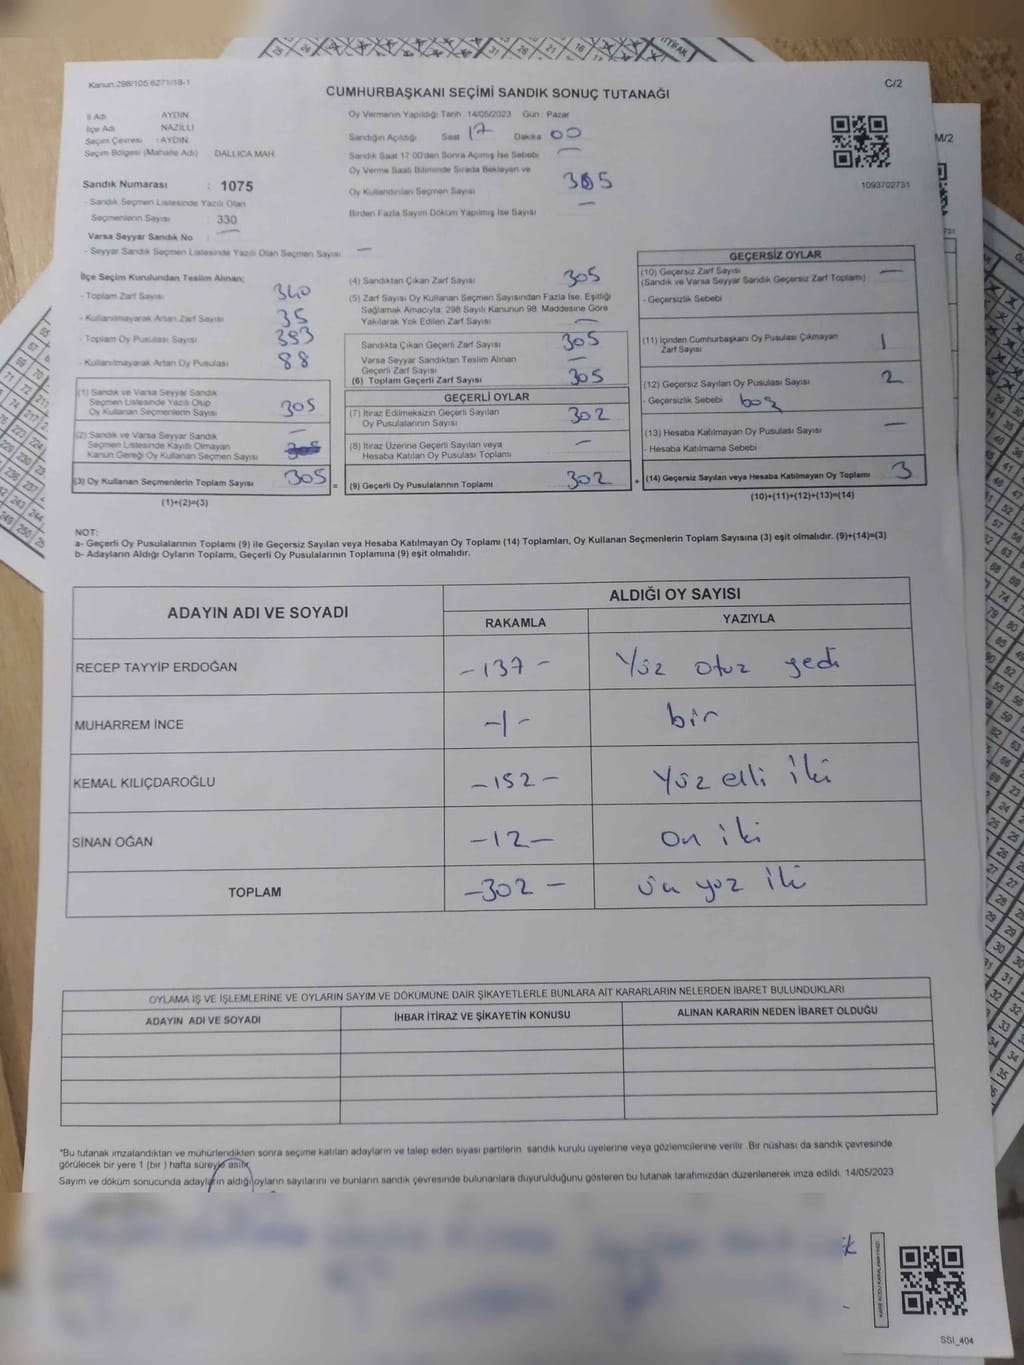 Kanun:298/105;6271/18-1
C/2
CUMHURBAŞKANI SEÇİMİ SANDIK SONUÇ TUTANAĞI
İl Adı AYDIN
İlçe Adı NAZİLLİ
Seçim Çevresi : AYDIN
Seçim Bölgesi (Mahalle Adı) DALLICA MAH.
Sandık Numarası : 1075
- Sandık Seçmen Listesinde Yazılı Olan
Seçmenlerin Sayısı 330
Varsa Seyyar Sandık No :
- Seyyar Sandık Seçmen Listesinde Yazılı Olan Seçmen Sayısı —
Oy Vermenin Yapıldığı Tarih 14/05/2023 Gün : Pazar
Sandığın Açıldığı Saat 17 Dakika 00
Sandık Saat 17:00'den Sonra Açımış İse Sebebi —
Oy Verme Saati Bitiminde Sırada Bekleyen ve
Oy Kullandırılan Seçmen Sayısı 305
Birden Fazla Sayım Döküm Yapılmış İse Sayısı —
1093702731
M/2
İlçe Seçim Kurulundan Teslim Alınan;
- Toplam Zarf Sayısı 340
- Kullanılmayarak Artan Zarf Sayısı 35
- Toplam Oy Pusulası Sayısı 393
- Kullanılmayarak Artan Oy Pusulası 88
(1) Sandık ve Varsa Seyyar Sandık
Seçmen Listesinde Yazılı Olup
Oy Kullanan Seçmenlerin Sayısı 305
(2) Sandık ve Varsa Seyyar Sandık
Seçmen Listesinde Kayıtlı Olmayan
Kanun Gereği Oy Kullanan Seçmen Sayısı —
(3) Oy Kullanan Seçmenlerin Toplam Sayısı 305 =
(1)+(2)=(3)
(4) Sandıktan Çıkan Zarf Sayısı 305
(5) Zarf Sayısı Oy Kullanan Seçmen Sayısından Fazla İse, Eşitliği
Sağlamak Amacıyla; 298 Sayılı Kanunun 98. Maddesine Göre
Yakılarak Yok Edilen Zarf Sayısı —
Sandıkta Çıkan Geçerli Zarf Sayısı 305
Varsa Seyyar Sandıktan Teslim Alınan
Geçerli Zarf Sayısı —
(6) Toplam Geçerli Zarf Sayısı 305
GEÇERLİ OYLAR
(7) İtiraz Edilmeksizin Geçerli Sayılan
Oy Pusulalarının Sayısı 302
(8) İtiraz Üzerine Geçerli Sayılan veya
Hesaba Katılan Oy Pusulası Toplamı —
(9) Geçerli Oy Pusulalarının Toplamı 302 +
GEÇERSİZ OYLAR
(10) Geçersiz Zarf Sayısı —
(Sandık ve Varsa Seyyar Sandık Geçersiz Zarf Toplamı)
- Geçersizlik Sebebi
(11) İçinden Cumhurbaşkanı Oy Pusulası Çıkmayan
Zarf Sayısı 1
(12) Geçersiz Sayılan Oy Pusulası Sayısı 2
- Geçersizlik Sebebi boş
(13) Hesaba Katılmayan Oy Pusulası Sayısı —
- Hesaba Katılmama Sebebi
(14) Geçersiz Sayılan veya Hesaba Katılmayan Oy Toplamı 3
(10)+(11)+(12)+(13)=(14)
NOT:
a- Geçerli Oy Pusulalarının Toplamı (9) ile Geçersiz Sayılan veya Hesaba Katılmayan Oy Toplamı (14) Toplamları, Oy Kullanan Seçmenlerin Toplam Sayısına (3) eşit olmalıdır. (9)+(14)=(3)
b- Adayların Aldığı Oyların Toplamı, Geçerli Oy Pusulalarının Toplamına (9) eşit olmalıdır.
ADAYIN ADI VE SOYADI
ALDIĞI OY SAYISI
RAKAMLA YAZIYLA
RECEP TAYYİP ERDOĞAN -137- Yüz otuz yedi
MUHARREM İNCE -1- bir
KEMAL KILIÇDAROĞLU -152- Yüz elli iki
SİNAN OĞAN -12- On iki
TOPLAM -302- Üç yüz iki
OYLAMA İŞ VE İŞLEMLERİNE VE OYLARIN SAYIM VE DÖKÜMÜNE DAİR ŞİKAYETLERLE BUNLARA AİT KARARLARIN NELERDEN İBARET BULUNDUKLARI
ADAYIN ADI VE SOYADI İHBAR İTİRAZ VE ŞİKAYETİN KONUSU ALINAN KARARIN NEDEN İBARET OLDUĞU
*Bu tutanak imzalandıktan ve mühürlendikten sonra seçime katılan adayların ve talep eden siyasi partilerin sandık kurulu üyelerine veya gözlemcilerine verilir. Bir nüshası da sandık çevresinde
görülecek bir yere 1 (bir ) hafta süreyle asılır.
Sayım ve döküm sonucunda adayların aldığı oyların sayılarını ve bunların sandık çevresinde bulunanlara duyurulduğunu gösteren bu tutanak tarafımızdan düzenlenerek imza edildi. 14/05/2023
SSI_404